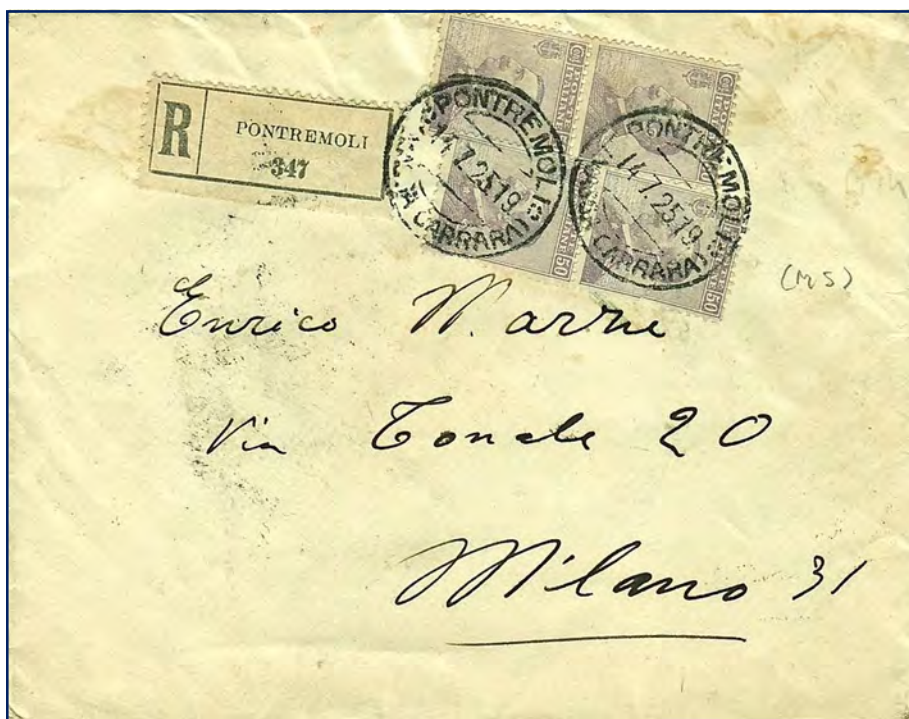 R PONTREMOLI
347
PONTREMOLI
14.7.25.19
CARRARA)
PONTREMOLI
14.7.25.19
CARRARA)
50
50
(MS)
Enrico Marre
Via Tonale 20
Milano 31